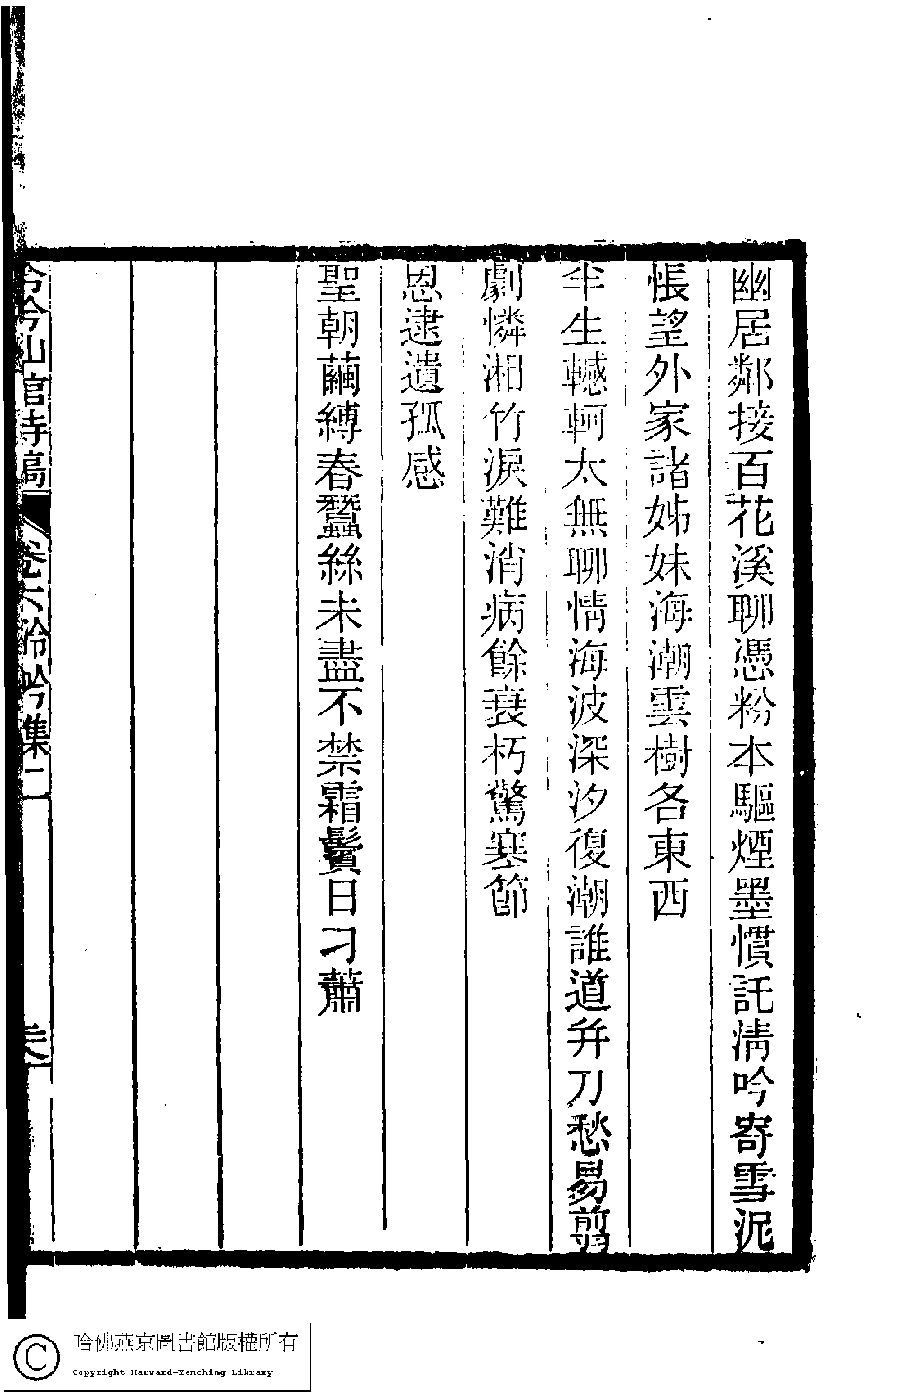 幽居鄰接百花溪聊憑粉本驅煙墨慣託清吟寄雪泥
悵望外家諸姊妹海潮雲樹各東西
半生轗軻太無聊情海波深汐復潮誰道并刀愁易剪
劇憐湘竹淚難消病餘衰朽驚寒節
恩逮遺孤感
聖朝繭縛春蠶絲未盡不禁霜鬢日刁蕭
冷吟仙館詩稿 卷六 吟集二
哈佛燕京圖書館版權所有
Copyright Harvard-Yenching Library